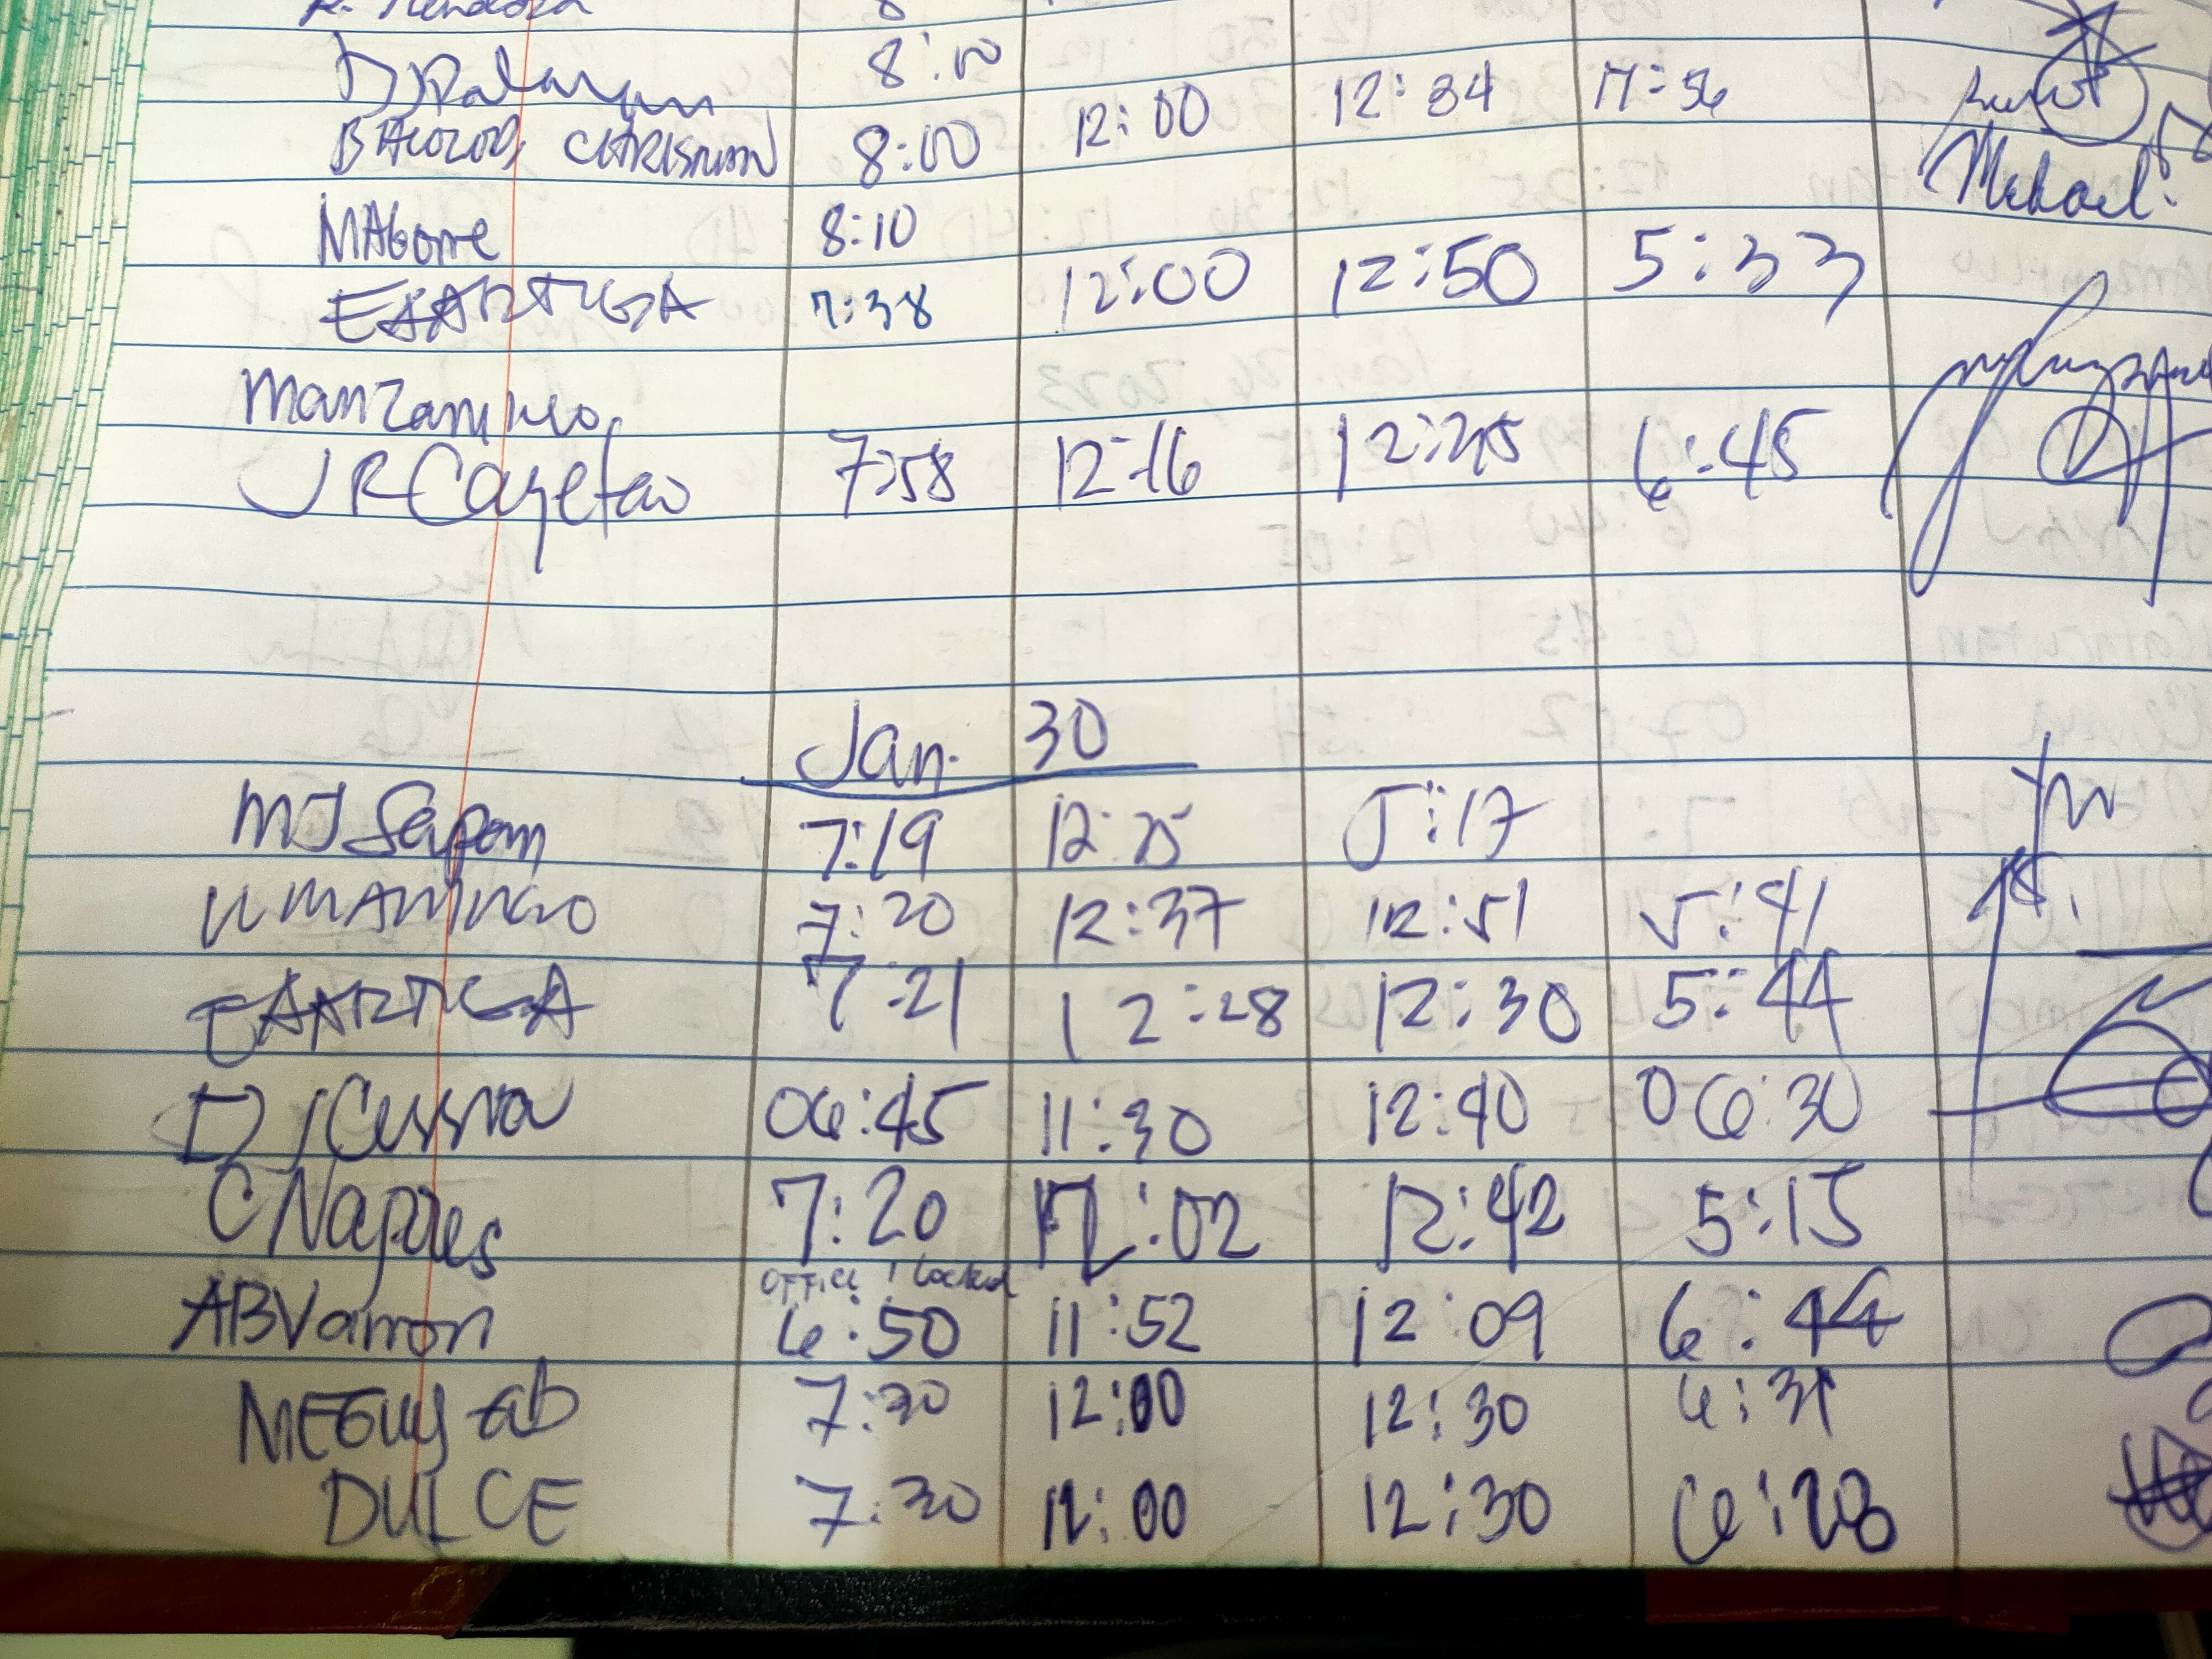 R. Mendoza 8
8:00
BALOZOS, CHRISTIAN 8:00 12:00 12:34
Michael
MAGome 8:10
EAARTIGA 7:38 12:00 12:50 5:33
Manzanillo
JR Cayetao 7:58 12:16 12:45 6:45
Jan. 30
MJ Sapom 7:19 12:25 5:17
7:20 12:37 12:51 5:41
EAARTIGA 7:21 12:28 12:30 5:44
06:45 11:30 12:40 06:30
C Napoles 7:20 12:02 12:42 5:15
OFFICE locked
ABVarron 6:50 11:52 12:09 6:44
MEGuy ab 7:30 12:00 12:30 6:31
DULCE 7:30 12:00 12:30 6:28